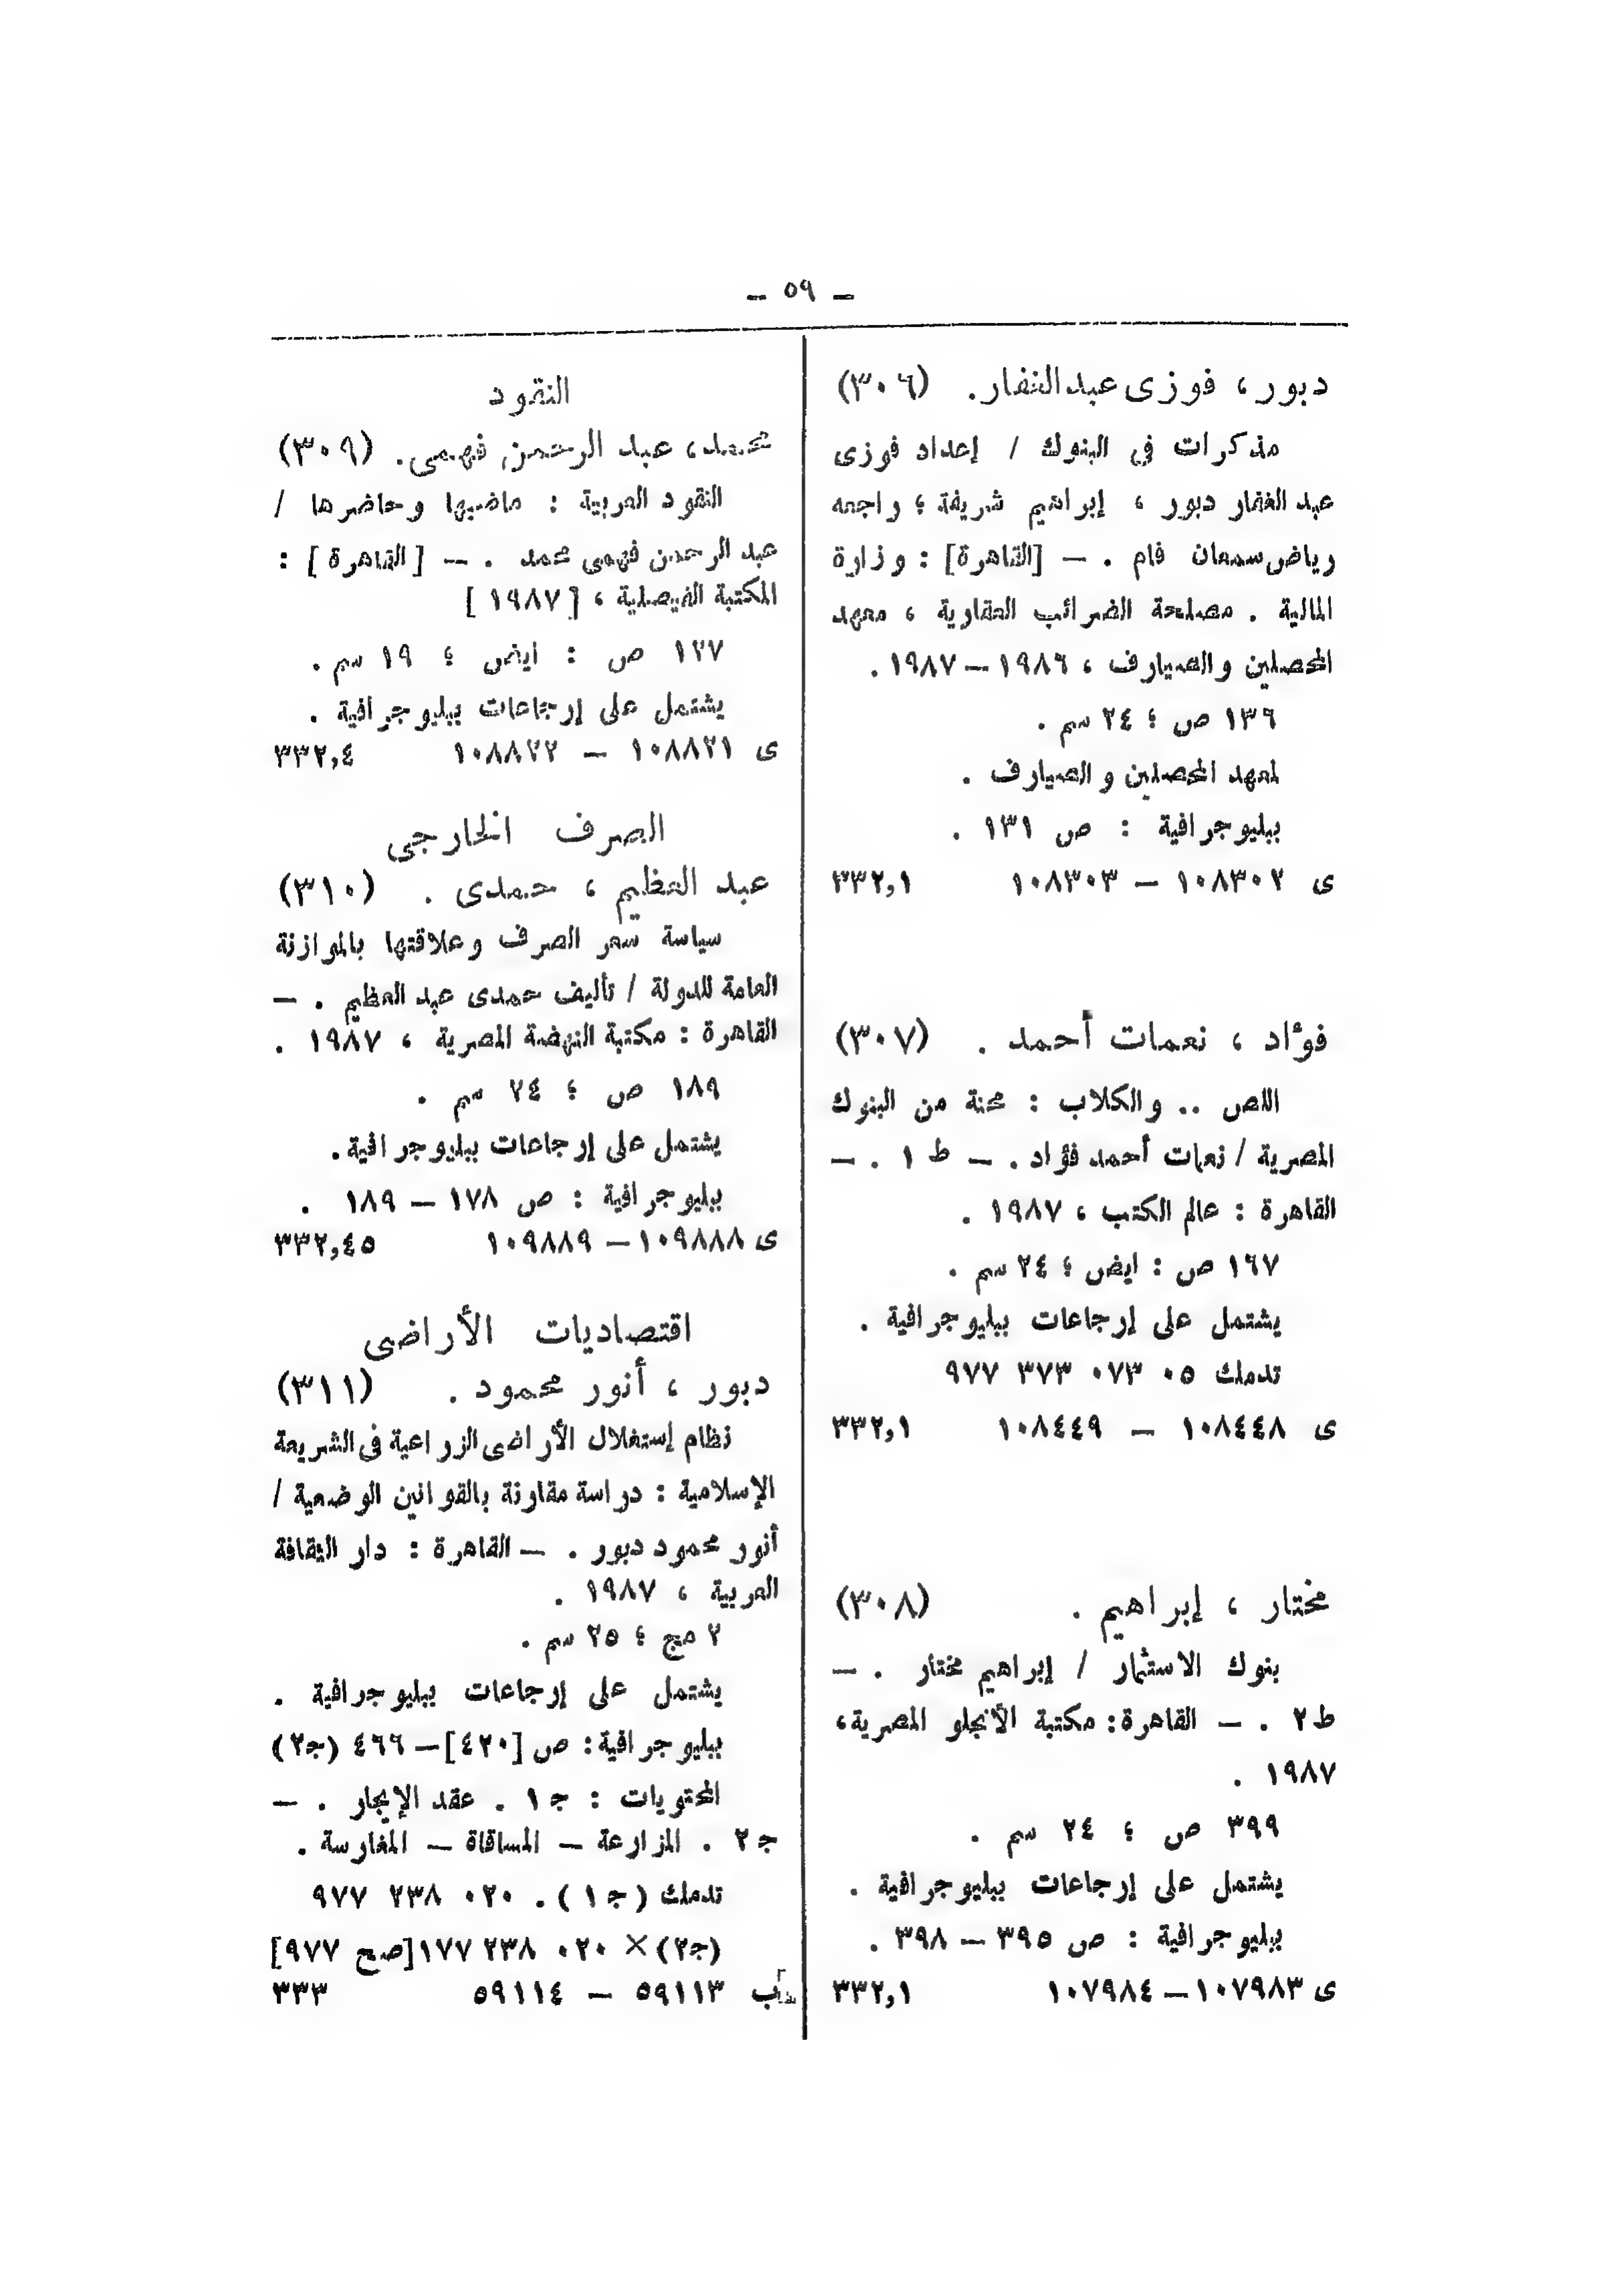 – ٥٩ –
دبور ، فوزى عبد الغفار . (٣٠٦)
مذكرات فى البنوك / إعداد فوزى
عبد الغفار دبور ، إبراهيم شريفة ؛ راجعه
رياض سمعان فام . – [القاهرة] : وزارة
المالية . مصلحة الضرائب العقارية ، معهد
المحصلين والصيارف ، ١٩٨٦ – ١٩٨٧ .
١٣٦ ص ؛ ٢٤ سم .
لمعهد المحصلين والصيارف .
ببليوجرافية : ص ١٣١ .
ى ١٠٨٣٠٢ – ١٠٨٣٠٣ ٣٣٢,١
فؤاد ، نعمات أحمد . (٣٠٧)
اللص .. والكلاب : محنة من البنوك
المصرية / نعمات أحمد فؤاد . – ط ١ . –
القاهرة : عالم الكتب ، ١٩٨٧ .
١٦٧ ص : ايض ؛ ٢٤ سم .
يشتمل على إرجاعات ببليوجرافية .
تدمك ٠٥ ٠٧٣ ٣٧٣ ٩٧٧
ى ١٠٨٤٤٨ – ١٠٨٤٤٩ ٣٣٢,١
مختار ، إبراهيم . (٣٠٨)
بنوك الاستثمار / إبراهيم مختار . –
ط٢ . – القاهرة : مكتبة الأنجلو المصرية ،
١٩٨٧ .
٣٩٩ ص ؛ ٢٤ سم .
يشتمل على إرجاعات ببليوجرافية .
ببليوجرافية : ص ٣٩٥ – ٣٩٨ .
ى ١٠٧٩٨٣ – ١٠٧٩٨٤ ٣٣٢,١
النقود
محمد ، عبد الرحمن فهمى . (٣٠٩)
النقود العربية : ماضيها وحاضرها /
عبد الرحمن فهمى محمد . – [القاهرة] :
المكتبة الفيصلية ، [١٩٨٧]
١٢٧ ص : ايض ؛ ١٩ سم .
يشتمل على إرجاعات ببليوجرافية .
ى ١٠٨٨٢١ – ١٠٨٨٢٢ ٣٣٢,٤
الصرف الخارجى
عبد العظيم ، حمدى . (٣١٠)
سياسة سعر الصرف وعلاقتها بالموازنة
العامة للدولة / تأليف حمدى عبد العظيم . –
القاهرة : مكتبة النهضة المصرية ، ١٩٨٧ .
١٨٩ ص ؛ ٢٤ سم .
يشتمل على إرجاعات ببليوجرافية .
ببليوجرافية : ص ١٧٨ – ١٨٩ .
ى ١٠٩٨٨٨ – ١٠٩٨٨٩ ٣٣٢,٤٥
اقتصاديات الأراضى
دبور ، أنور محمود . (٣١١)
نظام إستغلال الأراضى الزراعية فى الشريعة
الإسلامية : دراسة مقارنة بالقوانين الوضعية /
أنور محمود دبور . – القاهرة : دار الثقافة
العربية ، ١٩٨٧ .
٢ مج ؛ ٢٥ سم .
يشتمل على إرجاعات ببليوجرافية .
ببليوجرافية : ص [٤٢٠] – ٤٦٦ (ج٢)
المحتويات : ج١ . عقد الإيجار . –
ج٢ . المزارعة – المساقاة – المغارسة .
تدمك (ج١) . ٠٢٠ ٢٣٨ ٩٧٧
(ج٢) × ٠٢٠ ٢٣٨ ١٧٧ [صح ٩٧٧]
ب ٥٩١١٣ – ٥٩١١٤ ٣٣٣